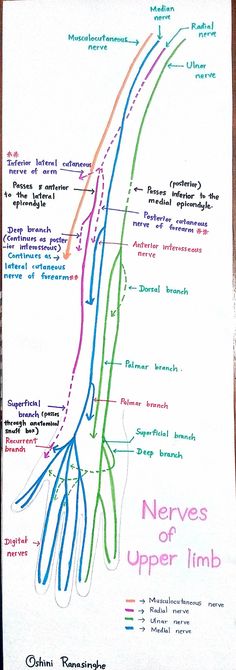 Median
nerve
Radial
nerve
Musculocutaneous
nerve
Ulnar
nerve
**
Inferior lateral cutaneous
nerve of arm
Passes anterior
to the lateral
epicondyle
(posterior)
Passes inferior to the
medial epicondyle.
Posterior cutaneous
nerve of forearm **
Deep branch
(Continues as poster
-ior interosseous)
Continues as
lateral cutaneous
nerve of forearm**
Anterior interosseous
nerve
Dorsal branch
Palmar branch.
Palmar branch
Superficial
branch (passes
through anatomical
snuff box)
Recurrent
branch
Superficial branch
Deep branch
Digital
nerves
Nerves
of
Upper limb
→ Musculocutaneous nerve
→ Radial nerve
→ Ulnar nerve
→ Medial nerve
Oshini Ranasinghe